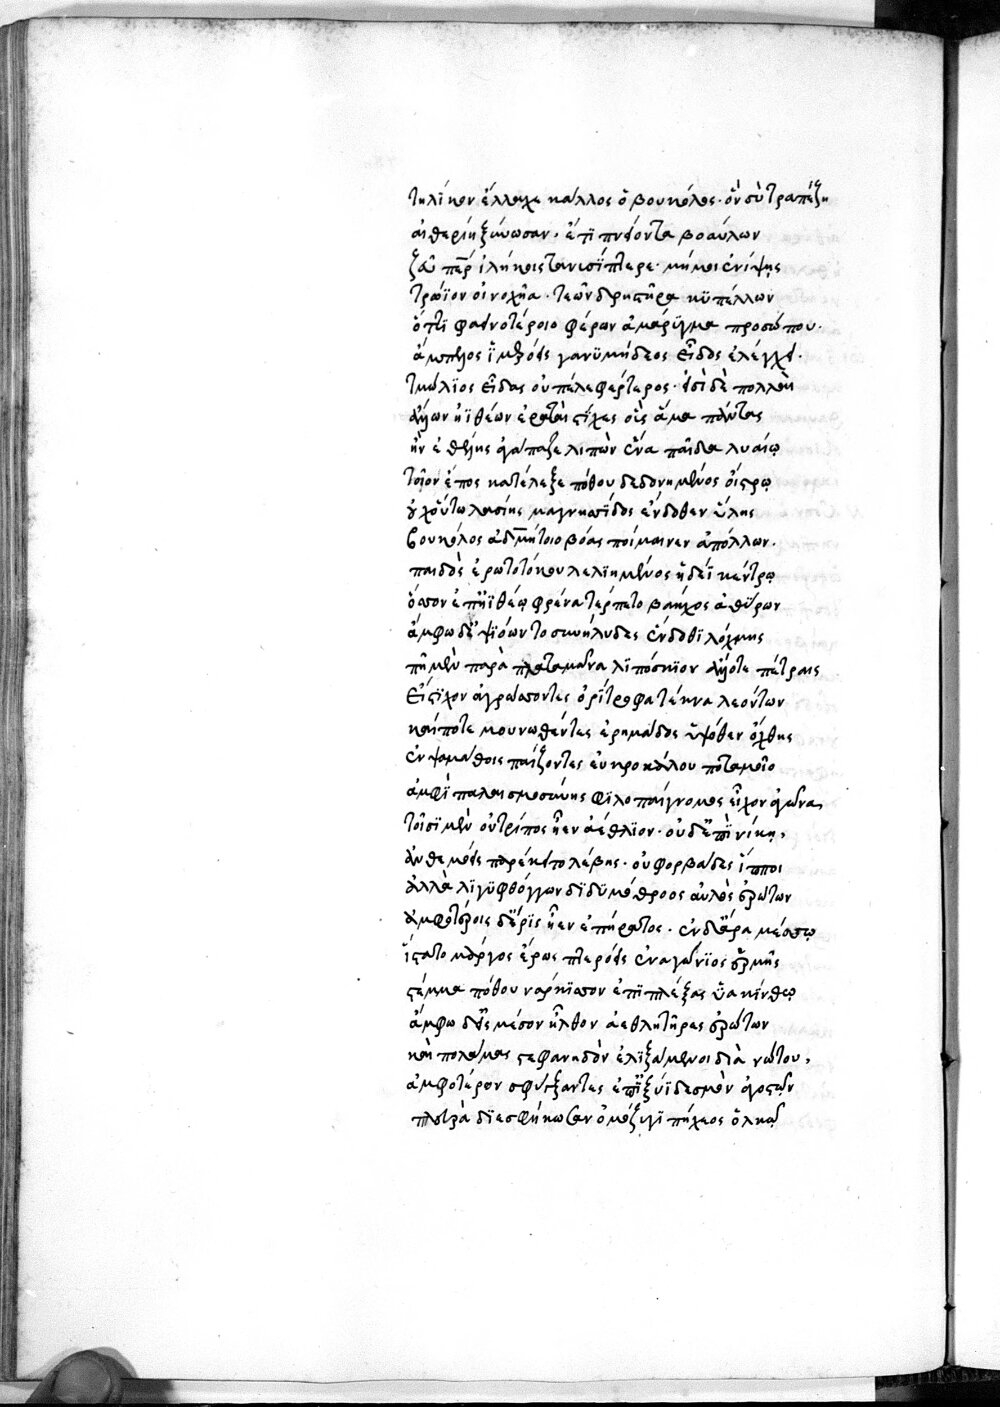 τηλίκον ἔλλαχε κάλλος ὁ βουκόλος· ὃν σὺ τραπέζῃ
αἰθερίῃ ξύνωσαν· ἔτι πνείοντα βοαύλων
ζεῦ πάτερ ἱλήκοις τανυσίπτερε· μή μοι ἐνίψῃς
τρώϊον οἰνοχῆα· τεῶν δρηστῆρα κυπέλλων
ὅττι φαεινοτέροιο φέρων ἀμάρυγμα προσώπου·
ἄμπελος ἱμερόεις γανυμήδεος εἶδος ἐλέγχει·
τμώλϊος εἶδος οὐ πέλε φέρτερος· εἰσὶ δὲ πολλῶν
ἄλλων ἠϊθέων ἐραταὶ στίχες οἷς ἅμα πάντας
ἢν ἐθέλῃς ἀγάπαζε λιπὼν ἕνα παῖδα λυαίῳ
τοῖον ἔπος κατέλεξε πόθου δεδονημένος οἴστρῳ
οὐχ οὕτω λασίης μαγνησίδος ἔνδοθεν ὕλης
βουκόλος ἀδμήτοιο βόας ποίμαινεν ἀπόλλων·
παιδὸς ἐρωτοτόκου λελϊημένος ἡδέϊ κέντρῳ
ὅσσον ἐπ' ἠϊθέῳ φρένα τέρπετο βάκχος ἀθύρων
ἄμφω δ' ἑψιόωντο συνήλυδες ἔνδοθι λόχμης
πῇ μὲν παρὰ πλαταμῶνα λιπόσκϊον ἄλλοτε πέτραις
εἰς στίχον ἀγρώσσοντες ὀρίτροφα τέκνα λεόντων
καί ποτε μουνωθέντες ἐρημάδος ὑψόθεν ὄχθης
ἐν ψαμάθοις παίζοντες ἐϋκροκάλου ποταμοῖο
ἀμφὶ παλαισμοσύνης φιλοπαίγμονος εἶχον ἀγῶνα,
τοῖσϊ μὲν οὐ τρίπος ἦεν ἀέθλϊον· οὐδ' ἐπὶ νίκῃ,
ἀνθεμόεις παρέκειτο λέβης· οὐ φορβάδες ἵπποι
ἀλλὰ λϊγυφθόγγων δϊδυμόθροος αὐλὸς ἐρώτων
ἀμφοτέροις δ' ἔρϊς ἦεν ἐπήρατος· ἐν δ' ἄρα μέσσῳ
ἵστατο μάργος ἔρως πτερόεις ἐναγώνϊος ἑρμῆς
στέμμα πόθου νάρκϊσσον ἐπϊπλέξας ὑακίνθῳ
ἄμφω δ' ἐς μέσον ἦλθον ἀεθλητῆρες ἐρώτων
καὶ παλάμας στεφανηδὸν ἑλϊξάμενοι διὰ νώτου,
ἀμφοτέρων σφίγξαντες ἐπ' ἰξύϊ δεσμὸν ἀγοστῶν
πλευρὰ δϊεσφήκωσαν ὁμόζυγϊ πήχεος ὁλκῷ